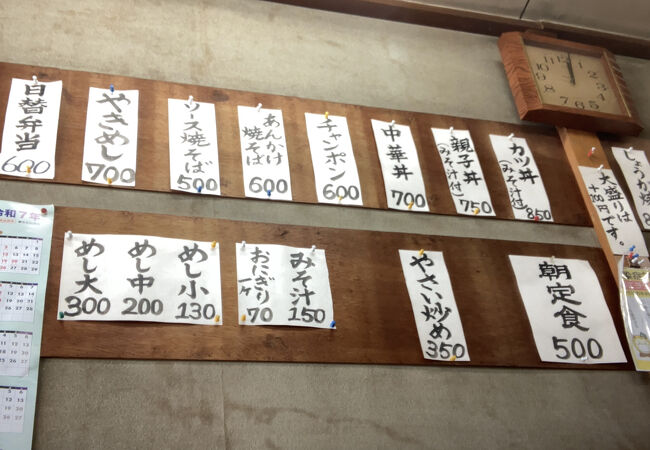 日替弁当
600
やきめし
700
ソース焼そば
500
あんかけ
焼そば
600
チャンポン
600
中華丼
700
親子丼
(みそ汁付)
750
カツ丼
(みそ汁付)
850
大盛りは
+100円です。
しょうが焼
めし大
300
めし中
200
めし小
130
みそ汁
150
おにぎり
一ケ
70
やさい炒め
350
朝定食
500
令和7年